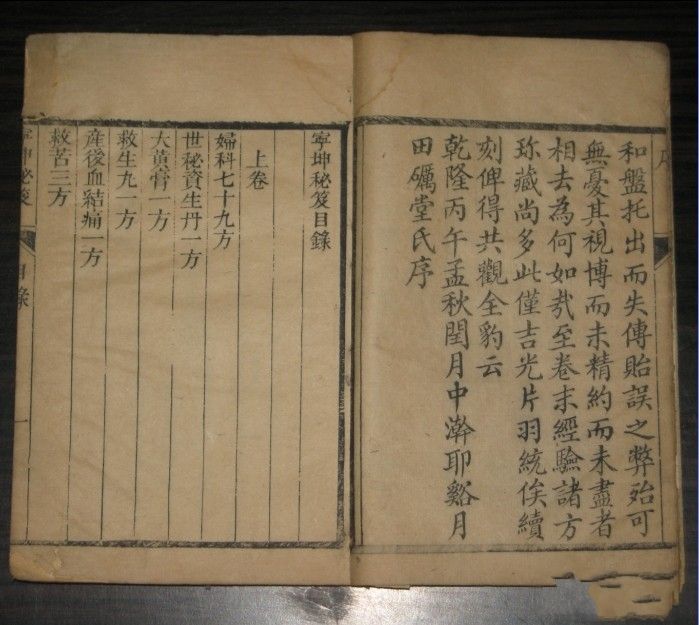 和盤托出而失傳貽誤之弊殆可
無憂其視博而未精約而未盡者
相去為何如㢤至卷末經驗諸方
珎藏尚多此僅吉光片羽統俟續
刻俾得共觀全豹云
乾隆丙午孟秋閏月中澣耶谿月
田礪堂氏序
寧坤秘笈目錄
上卷
婦科七十九方
世秘資生丹一方
大黃膏一方
救生九一方
產後血結痛一方
救苦三方
寧坤秘笈 目錄 一